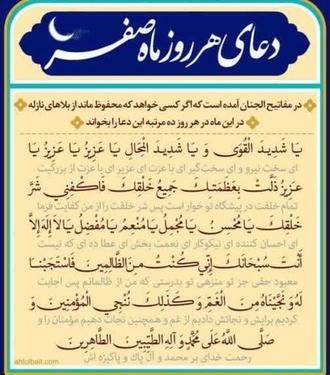 دعای هر روز ماه صفر
در مفاتیح الجنان آمده است که اگر کسی خواهد که محفوظ ماند از بلاهای نازله
در این ماه در هر روز ده مرتبه این دعا را بخواند
يَا شَدِيدَ الْقُوَى وَ يَا شَدِيدَ الْمِحَالِ يَا عَزِيزُ يَا عَزِيزُ يَا
ای سخت نیرو و ای سخت‌گیر ای با عزت ای عزیز ای با عزت از بزرگیت
عَزِيزُ ذَلَّتْ بِعَظَمَتِكَ جَمِيعُ خَلْقِكَ فَاكْفِنِي شَرَّ
تمام خلقت در پیشگاه تو خوار است پس شر خلقت را از من کفایت فرما
خَلْقِكَ يَا مُحْسِنُ يَا مُجْمِلُ يَا مُنْعِمُ يَا مُفْضِلُ يَا لَا إِلَهَ إِلَّا
ای احسان کننده ای نیکوکار ای نعمت بخش ای عطا ده ای که نیست
أَنْتَ سُبْحَانَكَ إِنِّي كُنْتُ مِنَ الظَّالِمِينَ فَاسْتَجَبْنَا
معبود حقی جز تو منزهی تو بدرستی که من از ظالمانم پس اجابت
لَهُ وَ نَجَّيْنَاهُ مِنَ الْغَمِّ وَ كَذَلِكَ نُنْجِي الْمُؤْمِنِينَ وَ
کردیم برایش و نجاتش دادیم از غم و همچنین نجات دهیم مؤمنان را و
صَلَّى اللَّهُ عَلَى مُحَمَّدٍ وَ آلِهِ الطَّيِّبِينَ الطَّاهِرِينَ
رحمت خدای بر محمد و آل پاک و پاکیزه اش
ahlolbait.com